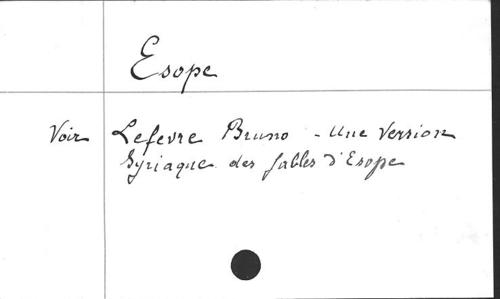 Esope
Voir Lefevre Bruno - Une Version
Syriaque des fables d'Esope